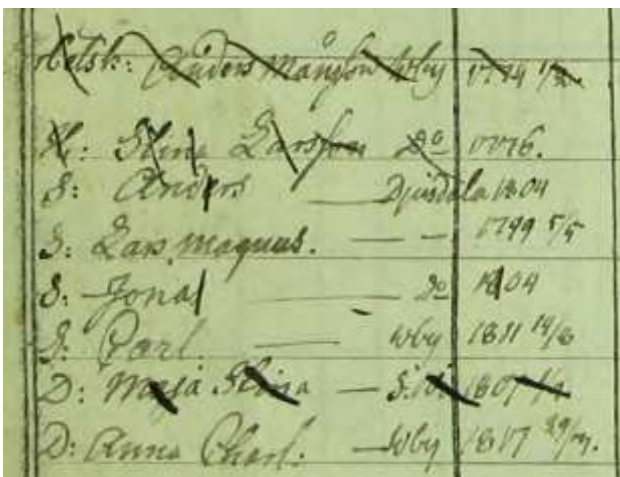 Anders Månsson Wby 1774
H: Stina Larsson Do 1776.
S: Anders Djursdala 1804
S: Lars Magnus. — — 1799 5/5
S: Jonas — Do 1804
S: Carl. — Wby 1811
D: Maja Stina — 1807
D: Anna Charl. — Wby 1817